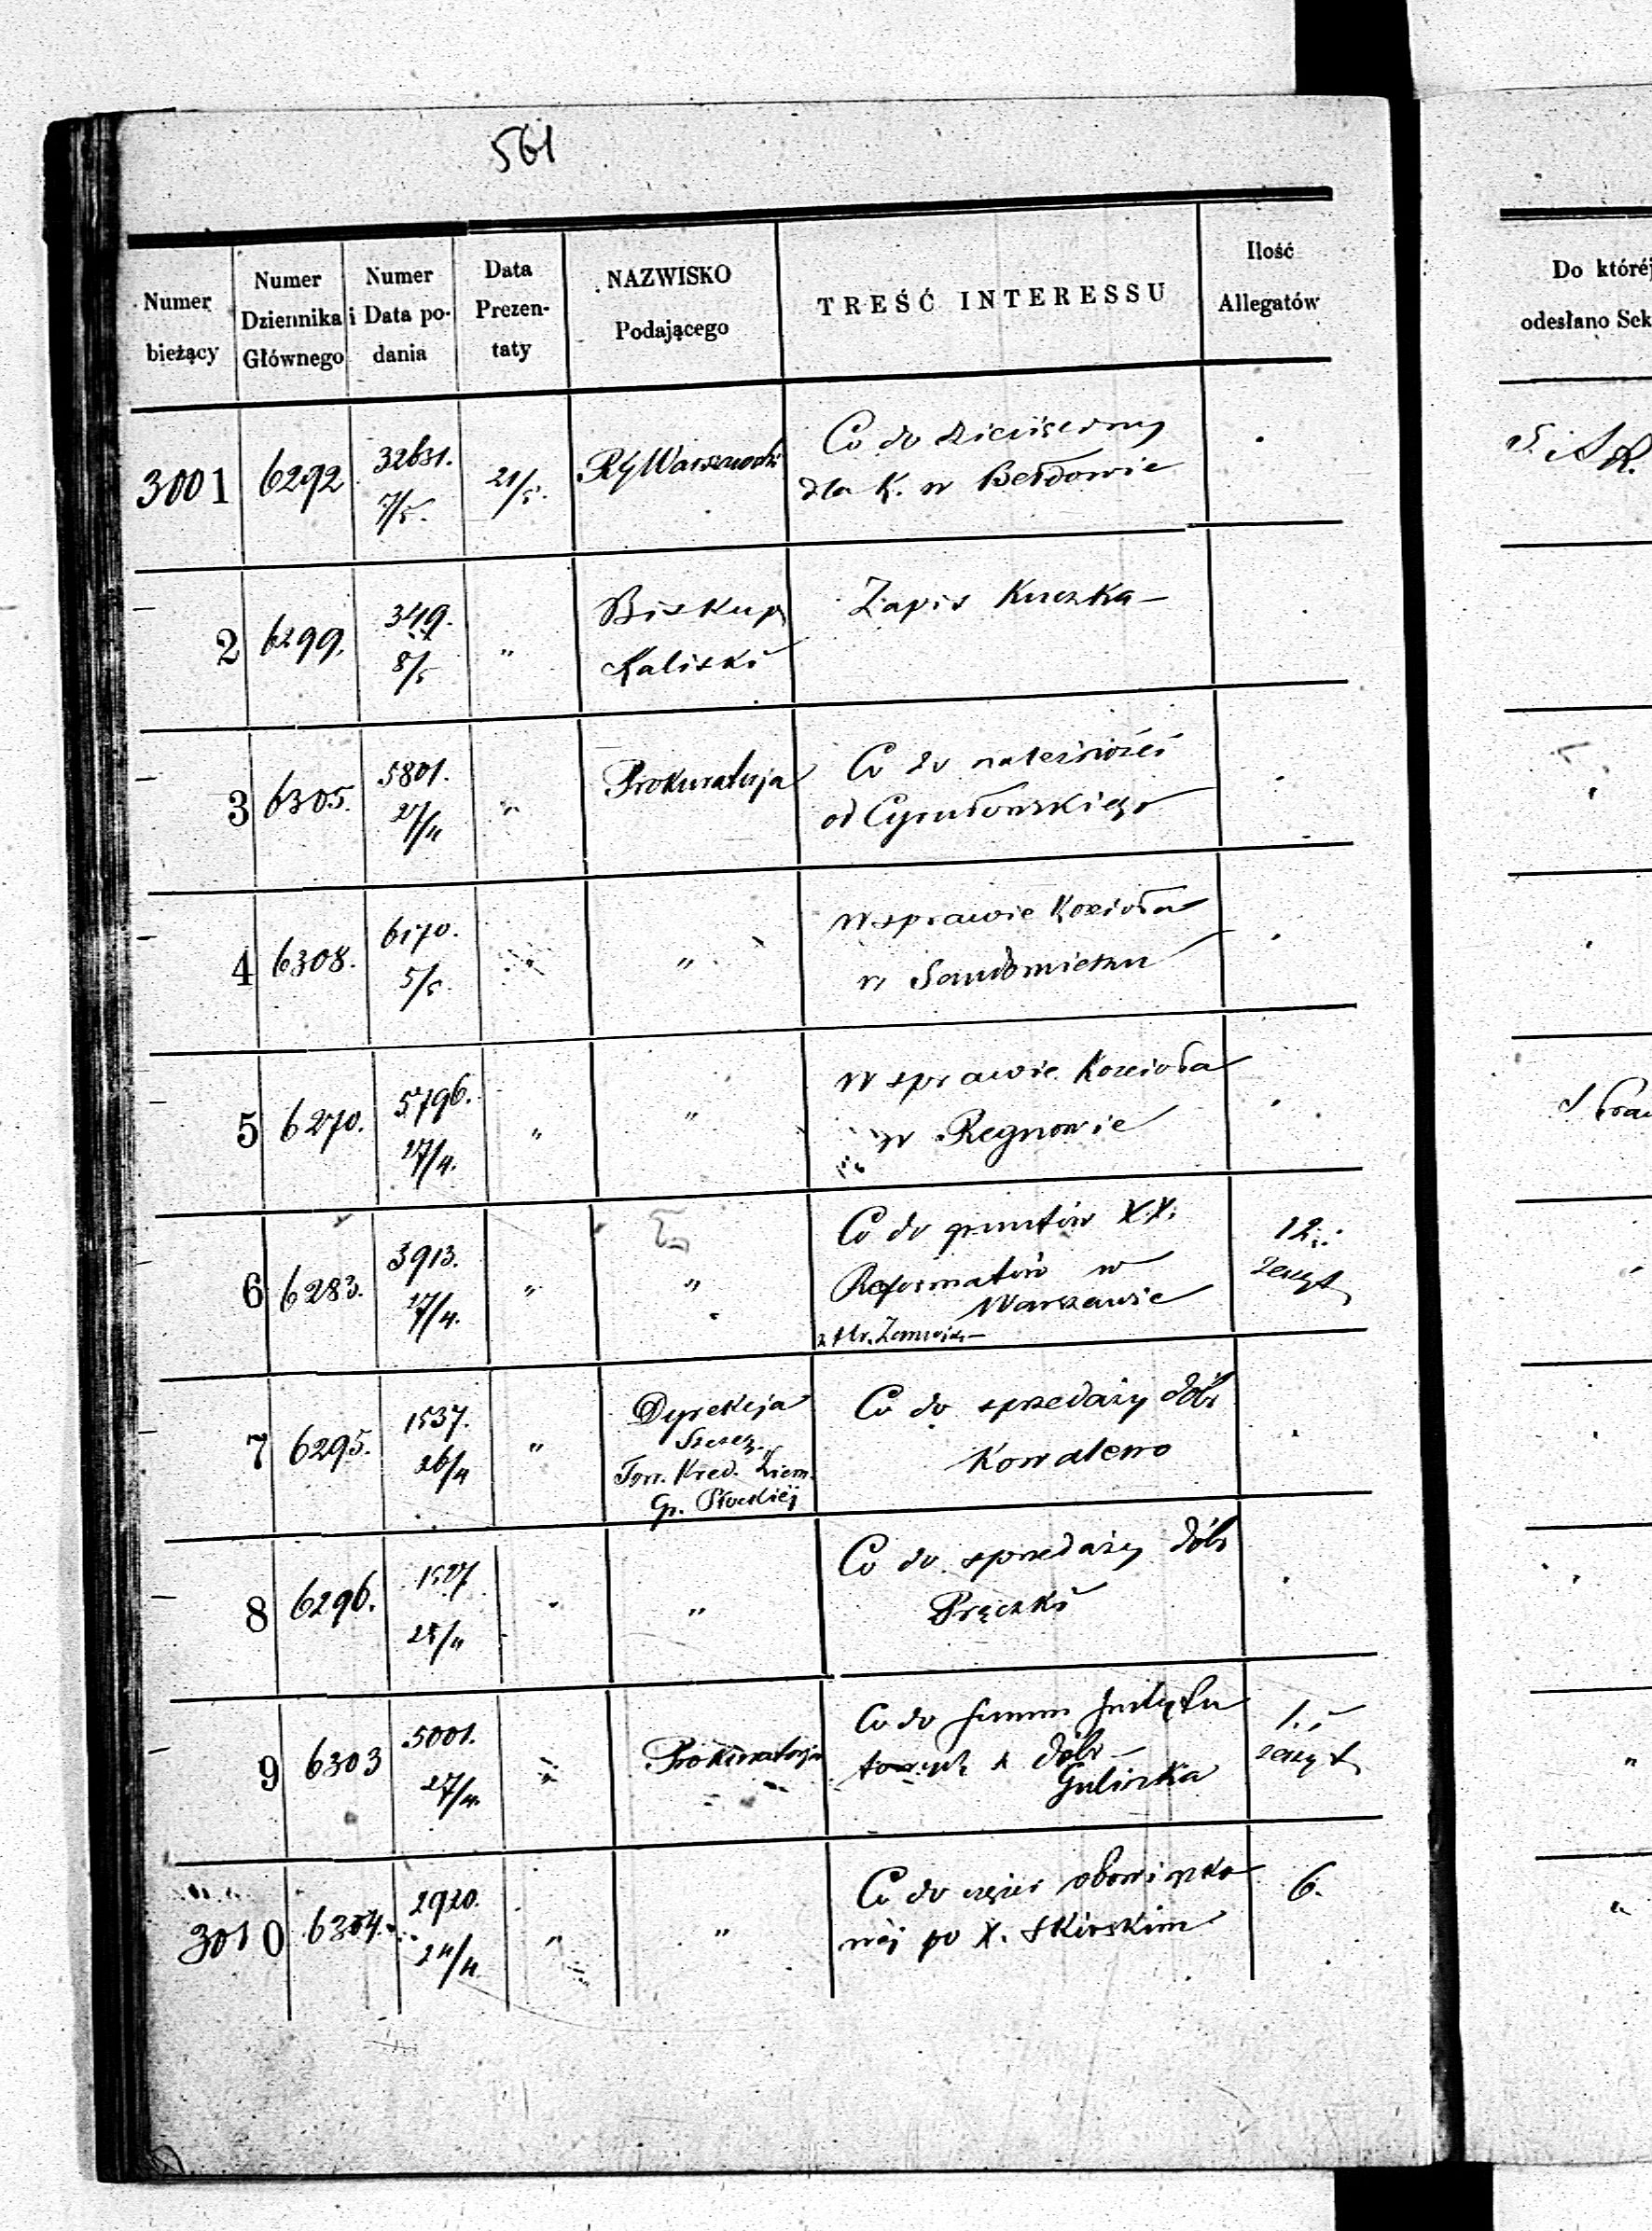 561
Numer bieżący
Numer Dziennika Głównego
Numer i Data podania
Data Prezentaty
NAZWISKO Podającego
TREŚĆ INTERESSU
Ilość Allegatów
Do któréj
odesłano Sek
3001 6292 32631. 7/5. 21/5. RG Warszawski
Co do
dla K. w Bełdowie
2 6299. 349. 8/5 " Biskup Kaliski
Zapis Kuczka —
3 6305. 5801. 27/4 " Prokuratorja
Co do należności
od Cyrułowskiego
4 6308. 6170. 5/5. " "
W sprawie Kościoła
w Sandomierzu
5 6270. 5796. 27/4. " "
W sprawie Kościoła
w Regnowie
6 6283. 3913. 27/4. " "
Co do gruntów XX. 12.
Reformatów w zeszyt
Warszawie
7 6295. 1537. 26/4 " Dyrekcja
Szczeg.
Tow. Kred. Ziem.
Gp. Płockiéj
Co do sprzedaży dóbr
Kowalewo
8 6296. 1527 25/4 "
Co do sprzedaży dóbr
Pręczki
9 6303 5001. 27/4. " Prokuratorja
Co do summ
z dóbr 1. zeszyt
Gulinka
3010 6304. 2920. 24/4. " "
Co do części obowiązko 6.
wéj po X. Skirskim